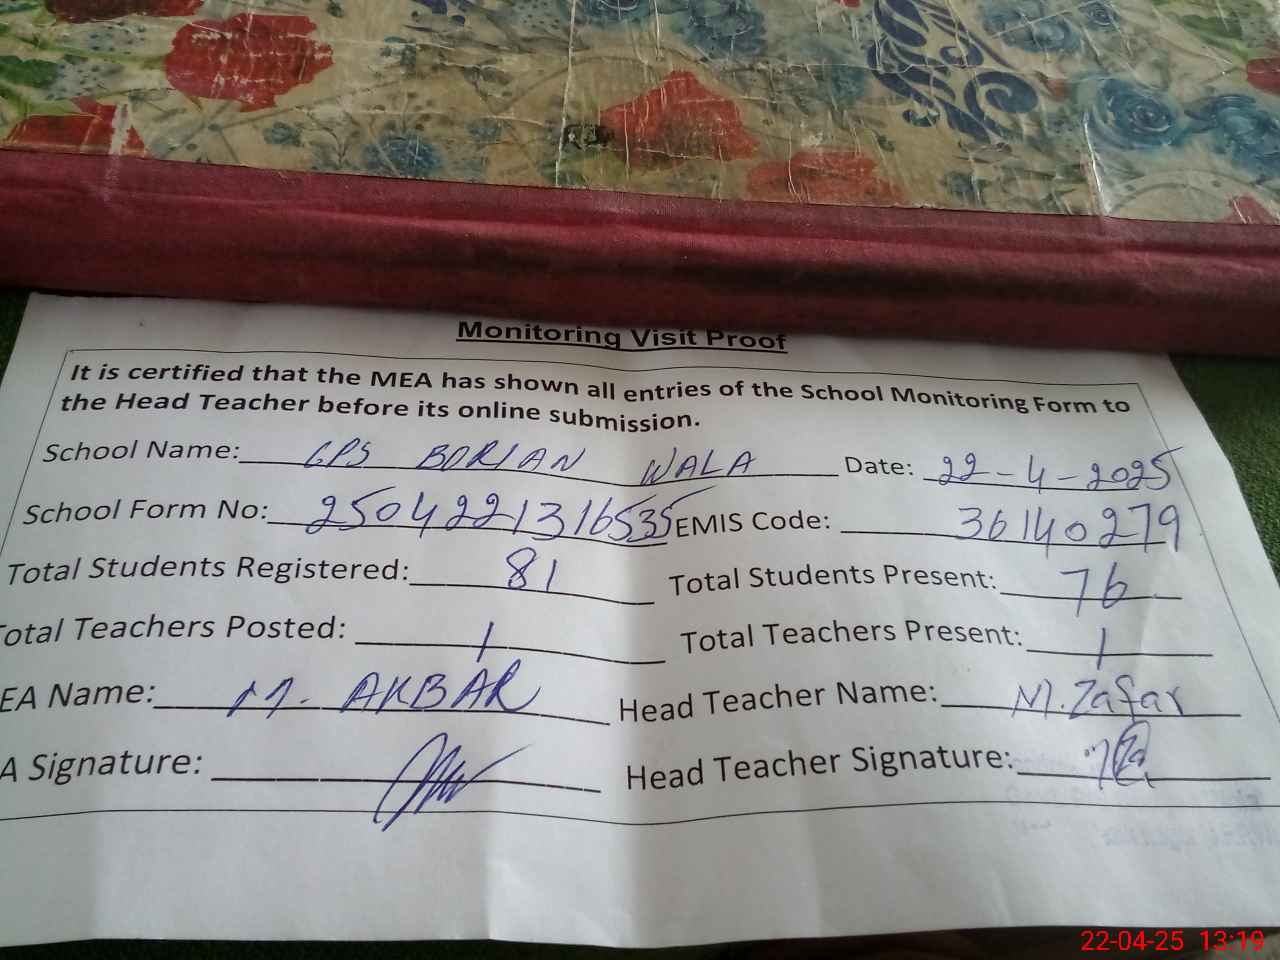 Monitoring Visit Proof
It is certified that the MEA has shown all entries of the School Monitoring Form to
the Head Teacher before its online submission.
School Name: GPS BORIAN WALA Date: 22-4-2025
School Form No: 250422131653535 EMIS Code: 36140279
Total Students Registered: 81 Total Students Present: 76
Total Teachers Posted: 1 Total Teachers Present: 1
EA Name: M. AKBAR Head Teacher Name: M. Zafar
A Signature: Head Teacher Signature:
22-04-25 13:19